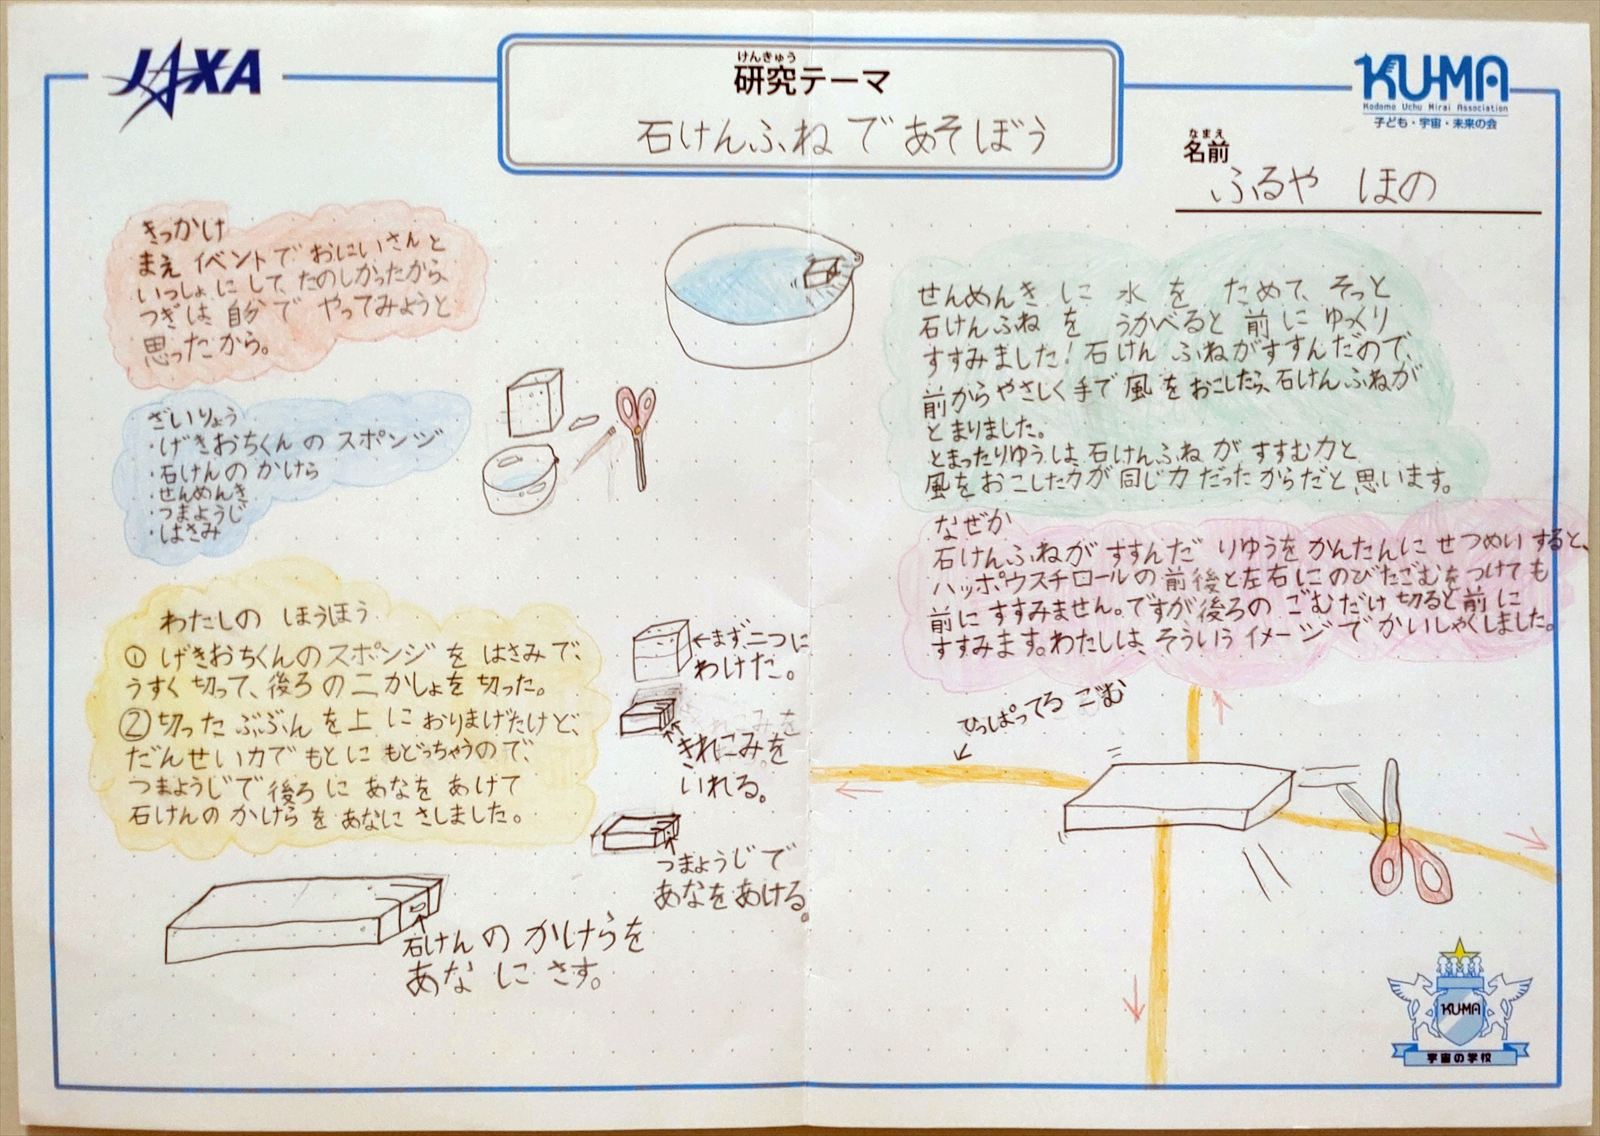 JAXA
けんきゅう
研究テーマ
石けんふねであそぼう
KU-MA
Kodomo Uchu Mirai Association
子ども・宇宙・未来の会
なまえ
名前
ふるや ほの
きっかけ
まえ イベントで おにいさんと
いっしょに して、たのしかったから、
つぎは、自分で やってみようと
思ったから。
ざいりょう
・げきおちくんの スポンジ
・石けんの かけら
・せんめんき
・つまようじ
・はさみ
わたしの ほうほう
① げきおちくんのスポンジを はさみで、
うすく 切って、後ろの二かしょを切った。
②切った ぶぶんを上に おりまげたけど、
だんせい力で もとに もどっちゃうので、
つまようじで 後ろに あなを あけて
石けんの かけらを あなに さしました。
←まず二つに
わけた。
きれこみを
いれる。
つまようじで
あなをあける。
石けんの かけらを
あな に さす。
せんめんきに 水を ためて、そっと
石けんふねを うかべると 前に ゆっくり
すすみました!石けん ふねがすすんだので、
前からやさしく手で風をおこしたら、石けんふねが
とまりました。
とまったりゆうは、石けんふねが すすむ力と
風をおこした力が同じ力だったからだと思います。
なぜか
石けんふねが すすんだ りゆうを かんたんに せつめいすると、
ハッポウスチロールの前後と左右にのびたごむをつけても
前にすすみません。ですが後ろの ごむだけ切ると前に
すすみます。わたしは、そういうイメージでかいしゃくしました。
ひっぱってる ごむ
KU-MA
宇宙の学校